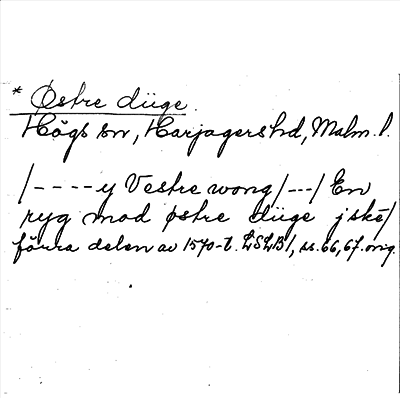 * Østre düge.
Högs sn, Harjagers hd, Malm. l.
/----y Vestre wong/---/ En
ryg mod østre düge jskẽ/
förra delen av 1570-t. LSLB 1, ss. 66, 67. orig.